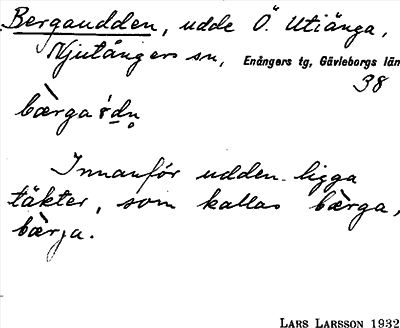 Bergaudden, udde Ö. Utiänga,
Njutångers sn, Enångers tg, Gävleborgs län
38
bærga
Innanför udden ligga
täkter, som kallas bærga,
bærja.
LARS LARSSON 1932